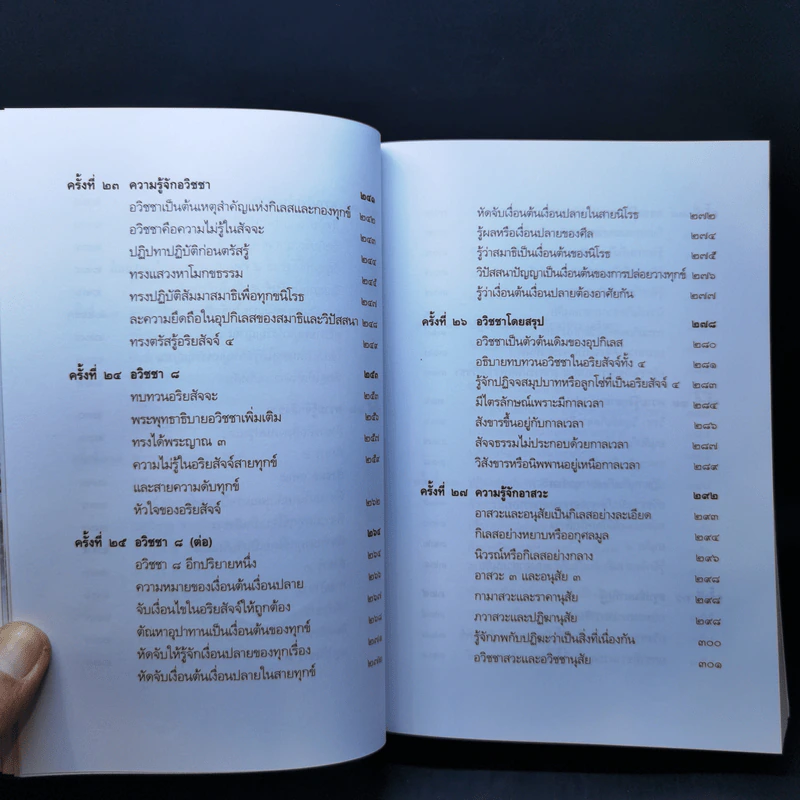 ครั้งที่ ๒๓ ความรู้จักอวิชชา ๒๔๑
อวิชชาเป็นต้นเหตุสำคัญแห่งกิเลสและกองทุกข์ ๒๔๒
อวิชชาคือความไม่รู้ในสัจจะ ๒๔๓
ปฏิปทาปฏิบัติก่อนตรัสรู้ ๒๔๔
ทรงแสวงหาโมกขธรรม ๒๔๕
ทรงปฏิบัติสัมมาสมาธิเพื่อทุกขนิโรธ ๒๔๗
ละความยึดถือในอุปกิเลสของสมาธิและวิปัสสนา ๒๔๘
ทรงตรัสรู้อริยสัจจ์ ๔ ๒๔๙
ครั้งที่ ๒๔ อวิชชา ๘ ๒๕๑
ทบทวนอริยสัจจะ ๒๕๓
พระพุทธาธิบายอวิชชาเพิ่มเติม
ทรงได้พระญาณ ๓ ๒๕๗
ความไม่รู้ในอริยสัจจ์สายทุกข์
และสายความดับทุกข์
หัวใจของอริยสัจจ์ ๒๖๒
ครั้งที่ ๒๕ อวิชชา ๘ (ต่อ) ๒๖๔
อวิชชา ๘ อีกปริยายหนึ่ง ๒๖๔
ความหมายของเงื่อนต้นเงื่อนปลาย ๒๖๖
จับเงื่อนไขในอริยสัจจ์ให้ถูกต้อง ๒๖๗
ตัณหาอุปาทานเป็นเงื่อนต้นของทุกข์
หัดจับให้รู้จักเงื่อนปลายของทุกเรื่อง
หัดจับเงื่อนต้นเงื่อนปลายในสายทุกข์
หัดจับเงื่อนต้นเงื่อนปลายในสายนิโรธ ๒๗๒
รู้ผลหรือเงื่อนปลายของศีล ๒๗๔
รู้ว่าสมาธิเป็นเงื่อนต้นของนิโรธ ๒๗๕
วิปัสสนาปัญญาเป็นเงื่อนต้นของการปล่อยวางทุกข์ ๒๗๖
รู้ว่าเงื่อนต้นเงื่อนปลายต้องอาศัยกัน ๒๗๗
ครั้งที่ ๒๖ อวิชชาโดยสรุป ๒๗๘
อวิชชาเป็นตัวต้นเดิมของอุปกิเลส ๒๘๐
อธิบายทบทวนอวิชชาในอริยสัจจ์ทั้ง ๔ ๒๘๑
รู้จักปฏิจจสมุปบาทหรือลูกโซ่ที่เป็นอริยสัจจ์ ๔ ๒๘๓
มีไตรลักษณ์เพราะมีกาลเวลา ๒๘๔
สังขารขึ้นอยู่กับกาลเวลา ๒๘๖
สัจจธรรมไม่ประกอบด้วยกาลเวลา ๒๘๗
วิสังขารหรือนิพพานอยู่เหนือกาลเวลา ๒๘๙
ครั้งที่ ๒๗ ความรู้จักอาสวะ ๒๙๒
อาสวะและอนุสัยเป็นกิเลสอย่างละเอียด ๒๙๓
กิเลสอย่างหยาบหรืออกุศลมูล ๒๙๔
นิวรณ์หรือกิเลสอย่างกลาง ๒๙๖
อาสวะ ๓ และอนุสัย ๓ ๒๙๘
กามาสวะและราคานุสัย ๒๙๘
ภวาสวะและปฏิฆานุสัย ๒๙๘
รู้จักภพกับปฏิฆะว่าเป็นสิ่งที่เนื่องกัน ๓๐๐
อวิชชาสวะและอวิชชานุสัย ๓๐๑